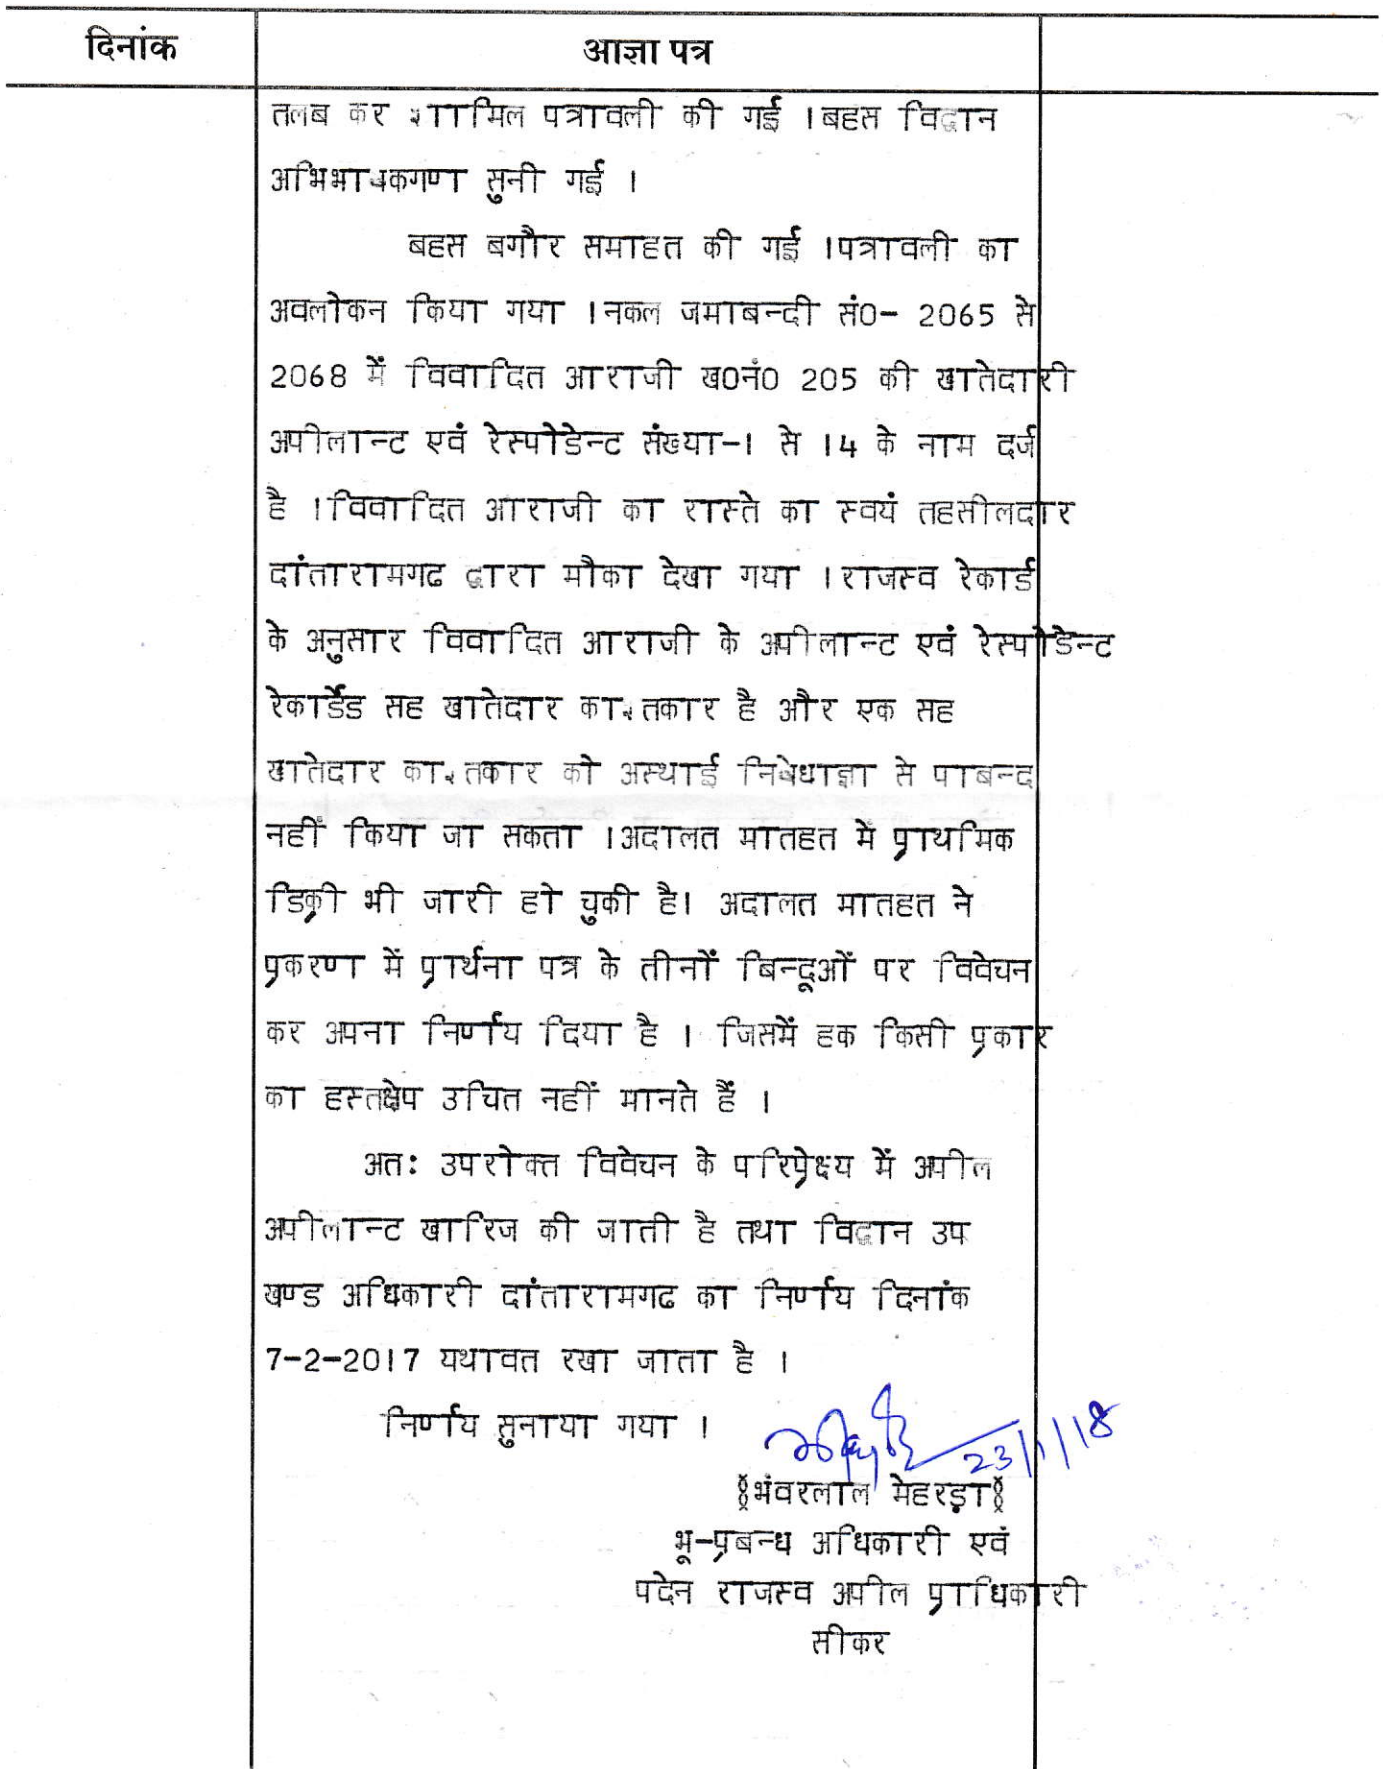 दिनांक आज्ञा पत्र
तलब कर शामिल पत्रावली की गई ।बहस विद्वान
अभिभाषकगण सुनी गई ।
बहस बगौर समाहत की गई ।पत्रावली का
अवलोकन किया गया ।नकल जमाबन्दी सं0- 2065 से
2068 में विवादित आराजी ख0नं0 205 की खातेदारी
अपीलान्ट एवं रेस्पोडेन्ट संख्या-1 से 14 के नाम दर्ज
है ।विवादित आराजी का रास्ते का स्वयं तहसीलदार
दांतारामगढ द्वारा मौका देखा गया ।राजस्व रेकार्ड
के अनुसार विवादित आराजी के अपीलान्ट एवं रेस्पोडेन्ट
रेकार्डेड सह खातेदार काश्तकार है और एक सह
खातेदार काश्तकार को अस्थाई निषेधाज्ञा से पाबन्द
नहीं किया जा सकता ।अदालत मातहत में प्राथमिक
डिक्री भी जारी हो चुकी है। अदालत मातहत ने
प्रकरण में प्रार्थना पत्र के तीनों बिन्दूओं पर विवेचन
कर अपना निर्णय दिया है । जिसमें हक किसी प्रकार
का हस्तक्षेप उचित नहीं मानते हैं ।
अतः उपरोक्त विवेचन के परिप्रेक्ष्य में अपील
अपीलान्ट खारिज की जाती है तथा विद्वान उप
खण्ड अधिकारी दांतारामगढ का निर्णय दिनांक
7-2-2017 यथावत रखा जाता है ।
निर्णय सुनाया गया ।
23/1/18
भंवरलाल मेहरड़ा
भू-प्रबन्ध अधिकारी एवं
पदेन राजस्व अपील प्राधिकारी
सीकर